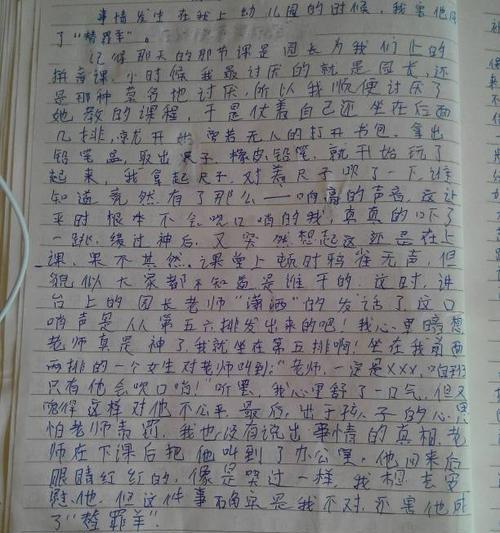 事情发生在我上幼儿园的时候，我害他成
了“替罪羊”。
记得那天的那节课是园长为我们上的
拼音课，小时候我最讨厌的就是园长，还
是那种莫名地讨厌，所以我顺便讨厌了
她教的课程，于是仗着自己还坐在后面
几排，就开始旁若无人的打开书包，拿出
铅笔盒，取出尺子，橡皮，铅笔，就开始玩了
起来，我拿起尺子，对着尺子吹了一下，谁
知道竟然有了那么一响高的声音，这让
平时根本不会吹口哨的我，真真的吓了
一跳，缓过神后，又突然想起这还是在上
课，果不其然，课堂上顿时鸦雀无声，但
貌似大家都不知道是谁干的，这时，讲
台上的园长老师“潇洒”的发话了，这口
哨声是从第五六排发出来的吧！我心里暗想
老师真是神了，我就坐在第五排啊！坐在我前面
两排的一个女生对老师叫到：“老师，一定是xxx，咱们
只有他会吹口哨！”听罢，我心里舒了一口气，但又
觉得这样对他不公平，最后，出于孩子的心里
怕老师责罚，我也没有说出事情的真相，老
师在下课后把他叫到了办公室，他回来后
眼睛红红的，像是哭过一样，我想去安
慰他，但这件事确实是我不对，还害他成
了“替罪羊”。